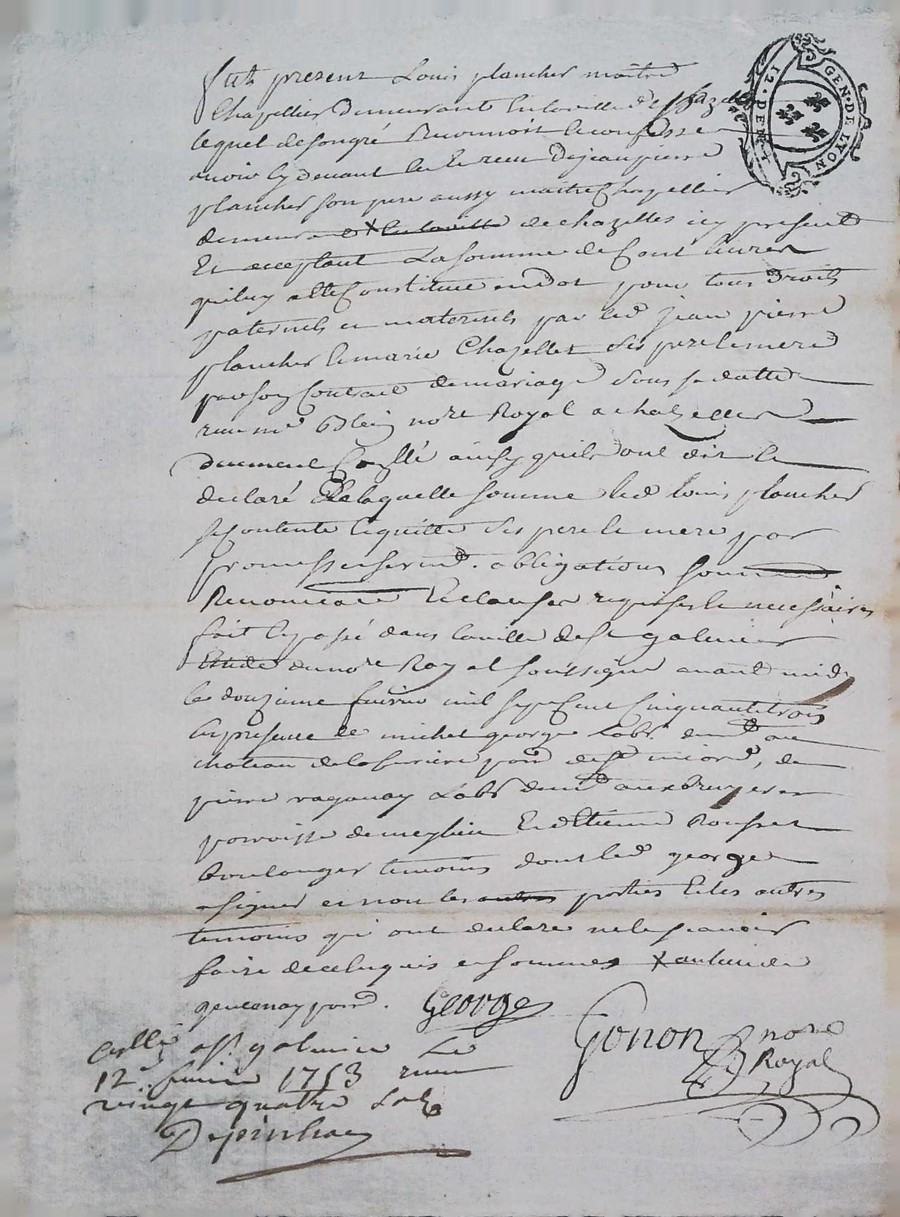 GEN · DE LYON
12 · DEN
fut present Louis plancher maitre
Chapellier demeurant en la ville de Chazelles
lequel de son gré Reconnoit et confesse
avoir cy devant eu et receu de jean pierre
plancher son pere aussy maitre Chapellier
demeurant X en la ville de chazelles icy present
Et acceptant La somme de Cent livres
qui luy a ete Constituée en dot pour tous droits
paternels et maternels par led jean pierre
plancher et marie Chazelles ses pere et mere
par son Contrat de mariage sous sa datte
receu me no.re Royal a chazelles
duement Conllé ainsy quils ont dit et
declaré de laquelle somme led louis plancher
se Contente et quitte ses pere et mere par
promesse serment . obligations
Renonciation et clauses requises et necessaires
fait et passé dans la ville de st galmier
Etude du no.re Royal soussigné avant midy
le douzieme fevrier mil sept cent cinquante trois
En presence de michel george Lab.r dem.t au
chateau de la par.se de st , de
pierre Lab.r dem.t aux bruyeres
paroisse de meylieu Et d'Etienne Rousset
boulanger temoins dont led george
a signé et non les autres parties et les autres
temoins qui ont declaré ne le scavoir
faire de ce enquis et sommés X au lieu de
par.se . George
Gonon no.re
Royal
Conllé a st galmier Le
12.e fevrier 1753 receu
vingt quatre sols
Depinhac